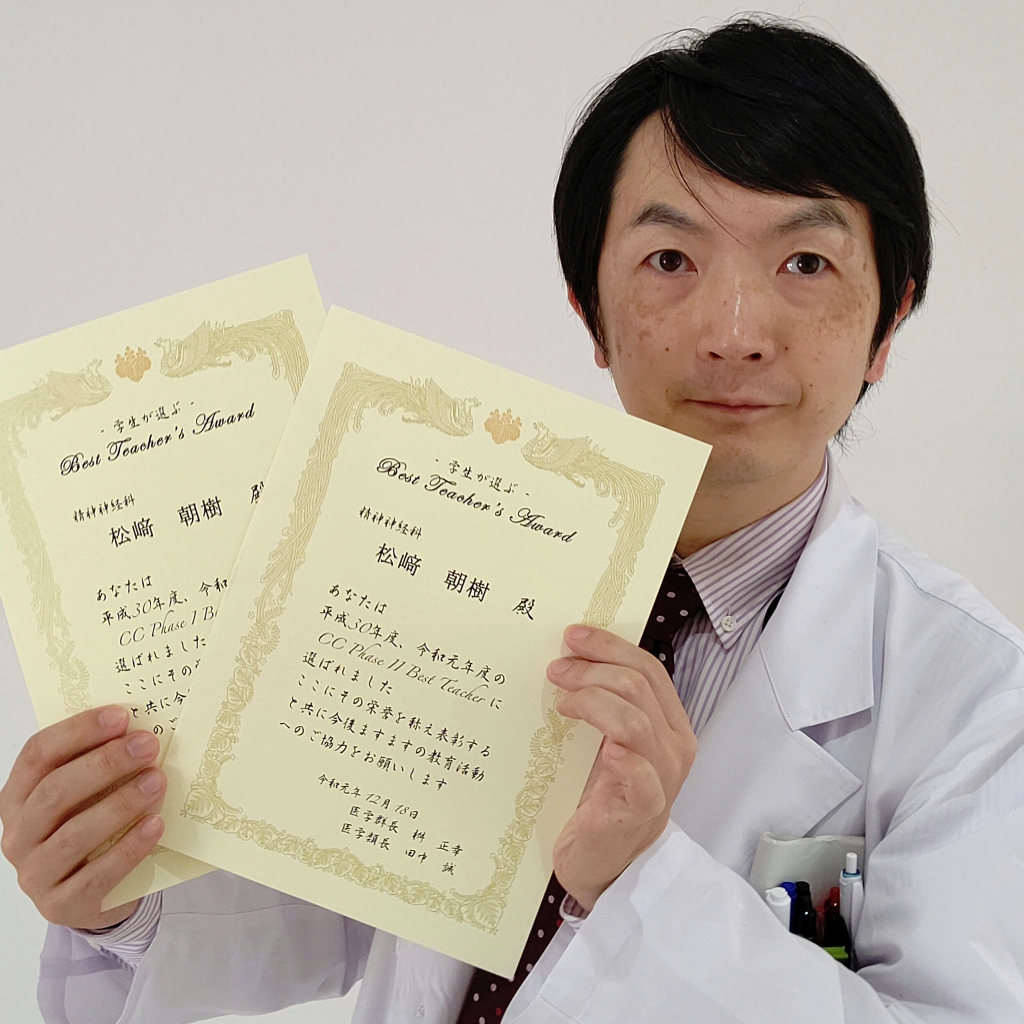 - 学生が選ぶ -
Best Teacher's Award
精神神経科
松﨑 朝樹 殿
あなたは
平成30年度、令和
CC Phase I
選ばれました
ここにその
と共に今
のご
- 学生が選ぶ -
Best Teacher's Award
精神神経科
松﨑 朝樹 殿
あなたは
平成30年度、令和元年度の
CC Phase II Best Teacher に
選ばれました
ここにその栄誉を称え表彰する
と共に今後ますますの教育活動
へのご協力をお願いします
令和元年12月18日
医学群長 桝 正幸
医学類長 田中 誠